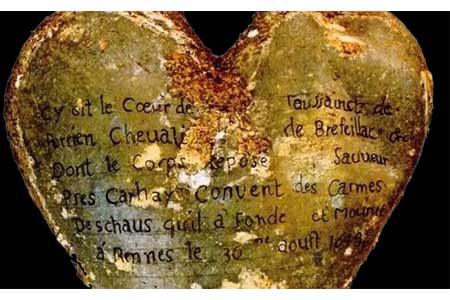 Cy git le Coeur de Toussainct de
Perrien Chevali de Brefeillac &c
Dont le Corps Repose Sauveur
Pres Carhay Convent des Carmes
Deschaus qu'il à Fondé et
á Rennes le 30 me aoust 1649